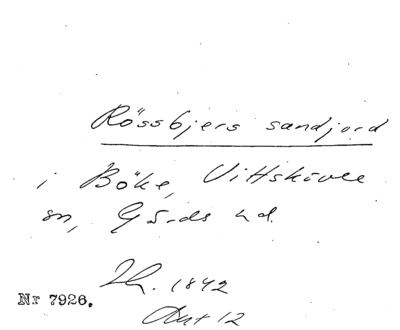 Rössbjers sandjord
i Böke, Vittskövle
sn, Gärds hd.
Lh. 1842
Akt 12
Nr 7926.